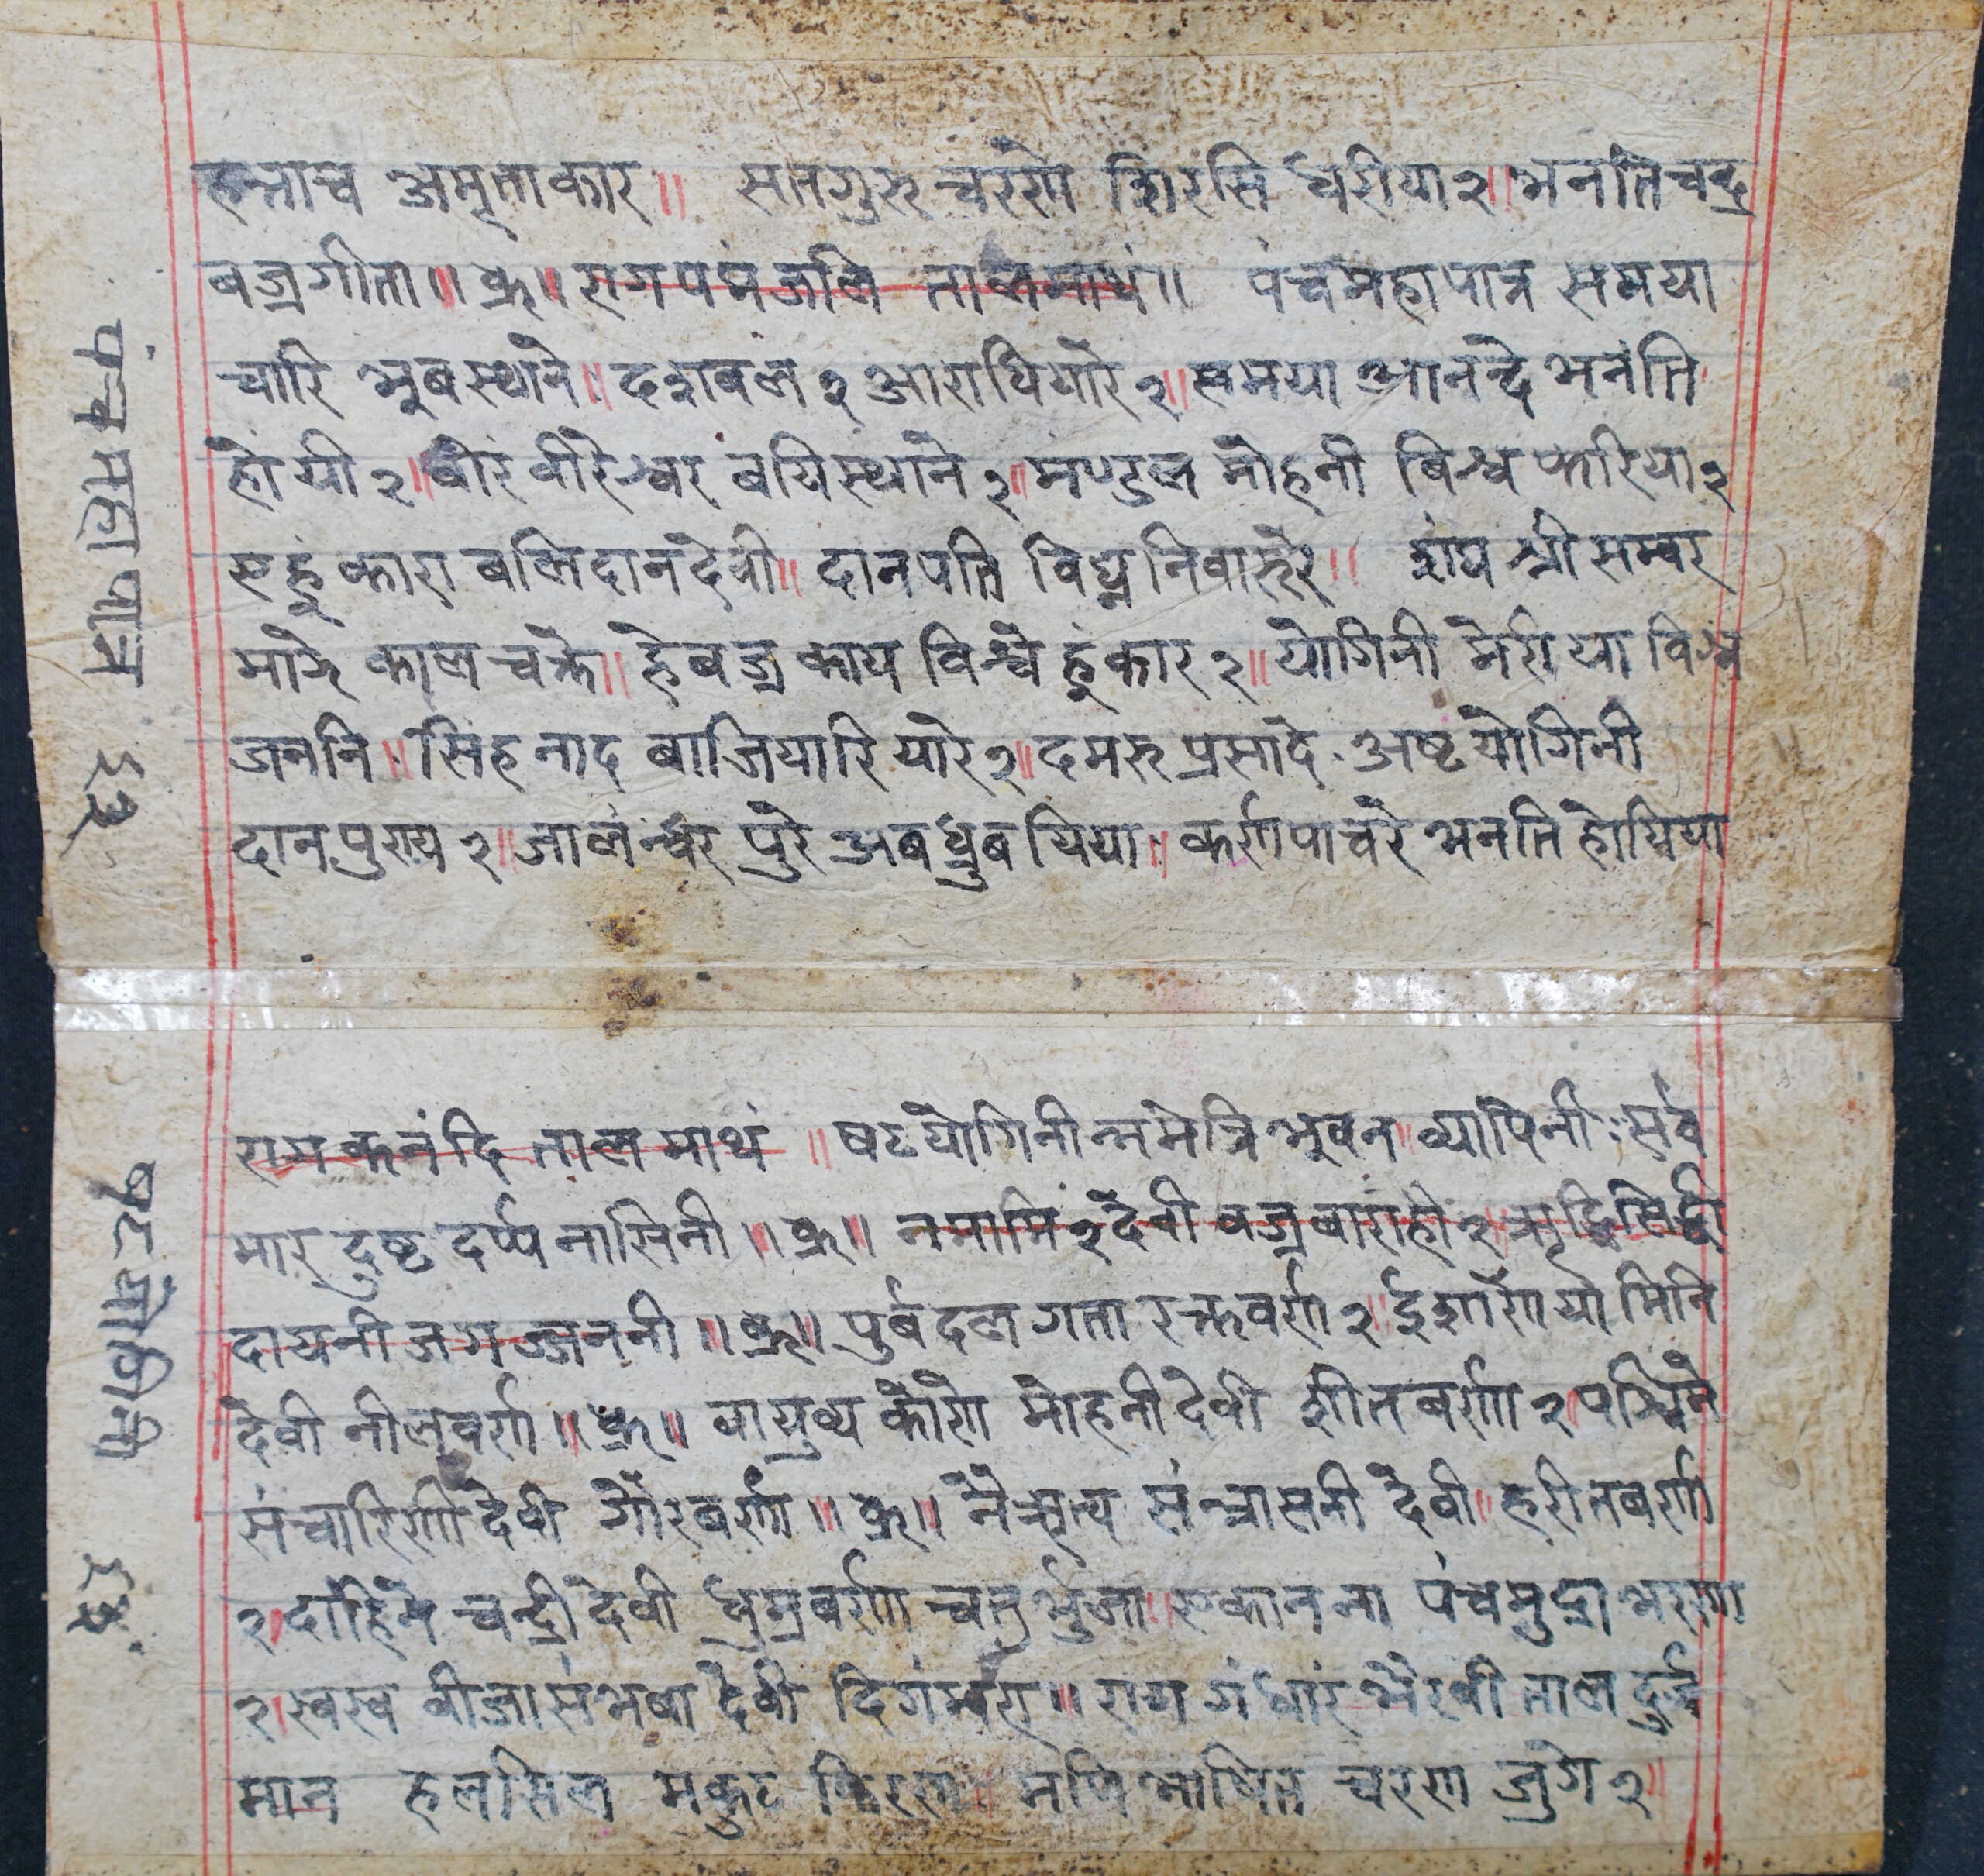 हन्नाच्च अमृताकार॥ सतगुरु चरणे शिरसि धरीया२॥ भनतिचन्द्र
बज्रगीता॥ ध्रु॥ रागपंमजलि तालमाथं॥ पंचमहापात्र समया
चारि भुबस्थाने॥ दशबल २ आराधियारे२॥ समया आनन्दे भनंति
होयी२॥ वीरवीरेश्वर बयिस्थाने२॥ मण्डल मोहनी बिश्व फरिया२
एहुं कारा बलिदानदेवी॥ दानपति विघ्न निवारुरे॥ श्री सम्बर
माझे काल चक्रे॥ हेबज्र काय विश्वे हुंकार२॥ योगिनी मेरीया विश्व
जननि॥ सिंहनाद बाजियारि यारे२॥ दमरु प्रसादे अष्टयोगिनी
दानपुराय२॥ जालन्धर पुरे अबधुबयिया॥ कर्णपाचरे भनति होयिया
पंचमहापात्र ६२
रामकनंदि ताल माथं॥ षटयोगिनीन्नमे त्रिभुवन व्यापिनी सर्व
मार दुष्ट दर्प्प नासिनी॥ ध्रु॥ नमामि२देवी बज्रवाराही२ ऋद्धिसिद्धी
दायनी जगज्जननी॥ ध्रु॥ पुर्बदल गता रक्तवर्णा२॥ ईशाणे यामिनि
देवी नीलवर्णा॥ ध्रु॥ वायुव्य कोणे मोहनीदेवी शीतबर्णा२ पश्चिमे
संचारिणीदेवी गौरबर्णा॥ ध्रु॥ नैऋत्य संत्रासनी देवी॥ हरीतबर्णा
२॥ दाहिने चन्द्रीदेवी धुम्रबर्णा चतुर्भुजा॥ एकानना पंचमुद्राभरणा
२॥ स्वस्व बीजासंभवा देवी दिगंम्बरा॥ राग गंधार भैरबी ताल दुर्ज्ज
मान हलसिल मकुट किरण॥ मणि चरण जुगे२॥
षटयोगिनी ६३